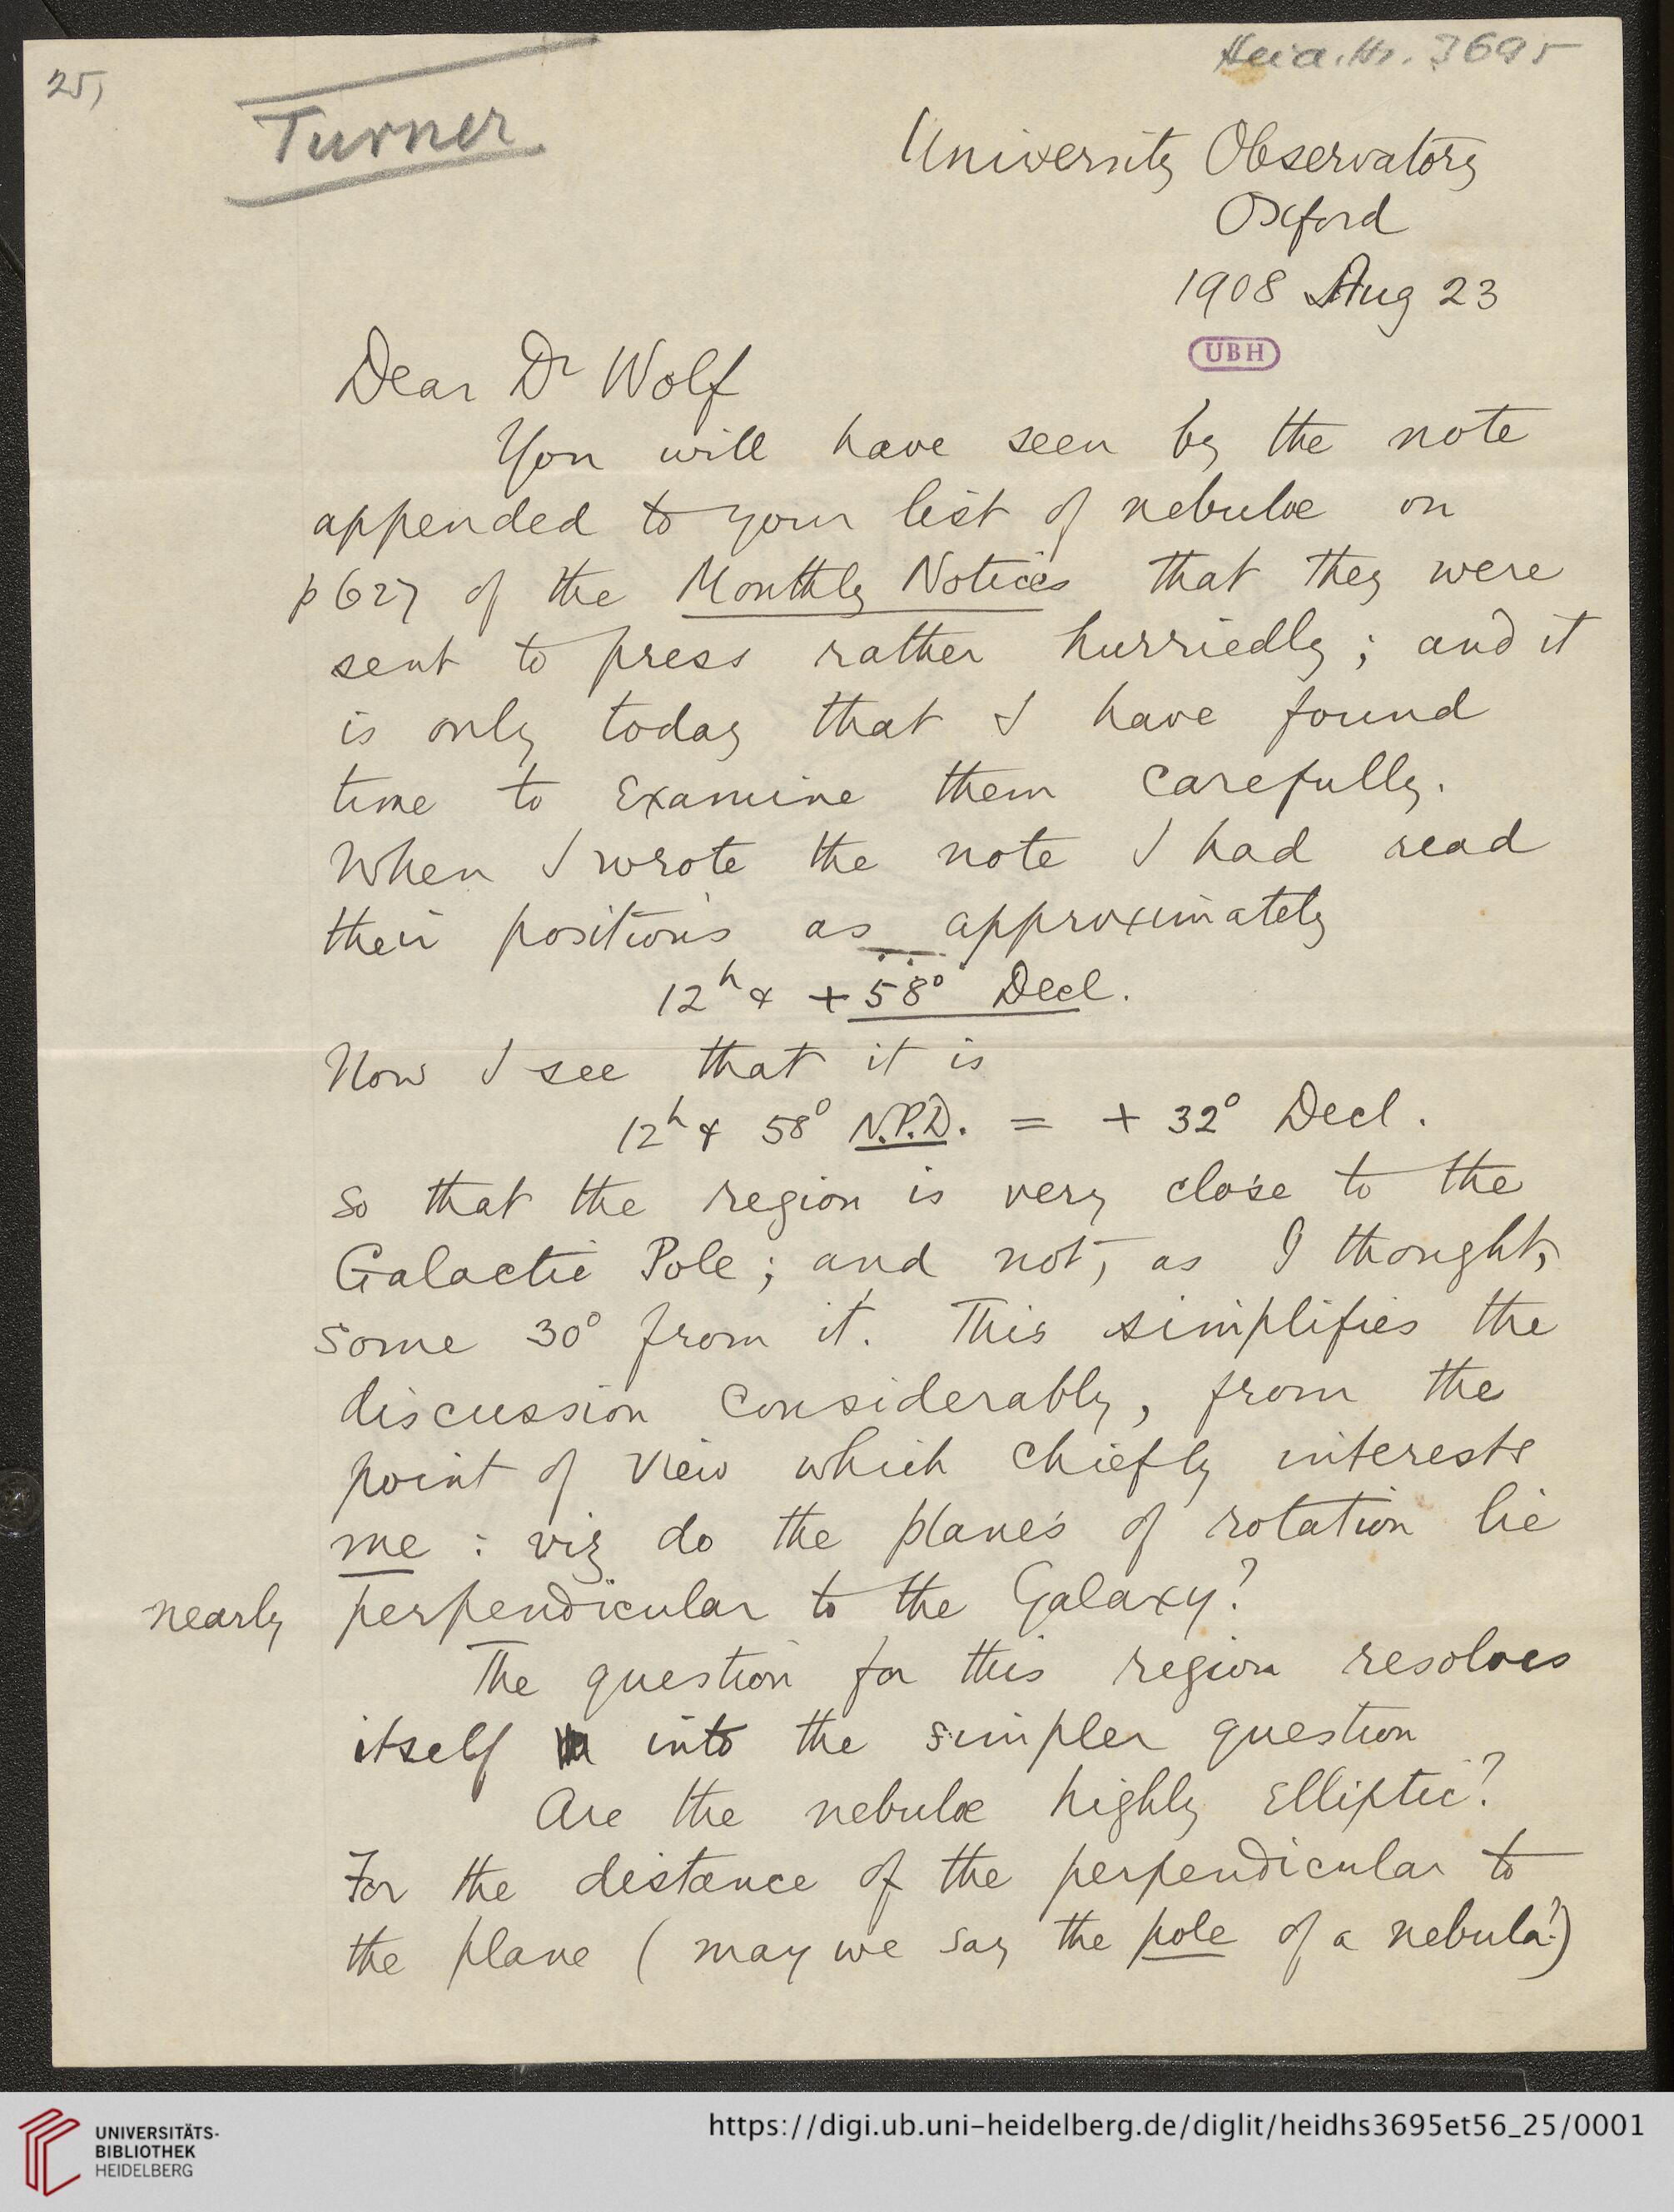 25)
Turner
Heid. Hs. 3695
University Observatory
Oxford
1908 Aug 23
UBH
Dear Dr Wolf
You will have seen by the note
appended to your list of nebulæ on
p 627 of the Monthly Notices that they were
sent to press rather hurriedly; and it
is only today that I have found
time to examine them carefully.
When I wrote the note I had read
their positions as approximately
12h & +58° Decl.
Now I see that it is
12h & 58° N.P.D. = + 32° Decl.
so that the region is very close to the
Galactic Pole; and not, as I thought,
some 30° from it. This simplifies the
discussion considerably, from the
point of view which chiefly interests
me : viz do the planes of rotation lie
nearly perpendicular to the Galaxy?
The question for this region resolves
itself into the simpler question
Are the nebulæ highly elliptic?
For the distance of the perpendicular to
the plane (may we say the pole of a nebula?)
UNIVERSITÄTS-
BIBLIOTHEK
HEIDELBERG
https://digi.ub.uni-heidelberg.de/diglit/heidhs3695et56_25/0001